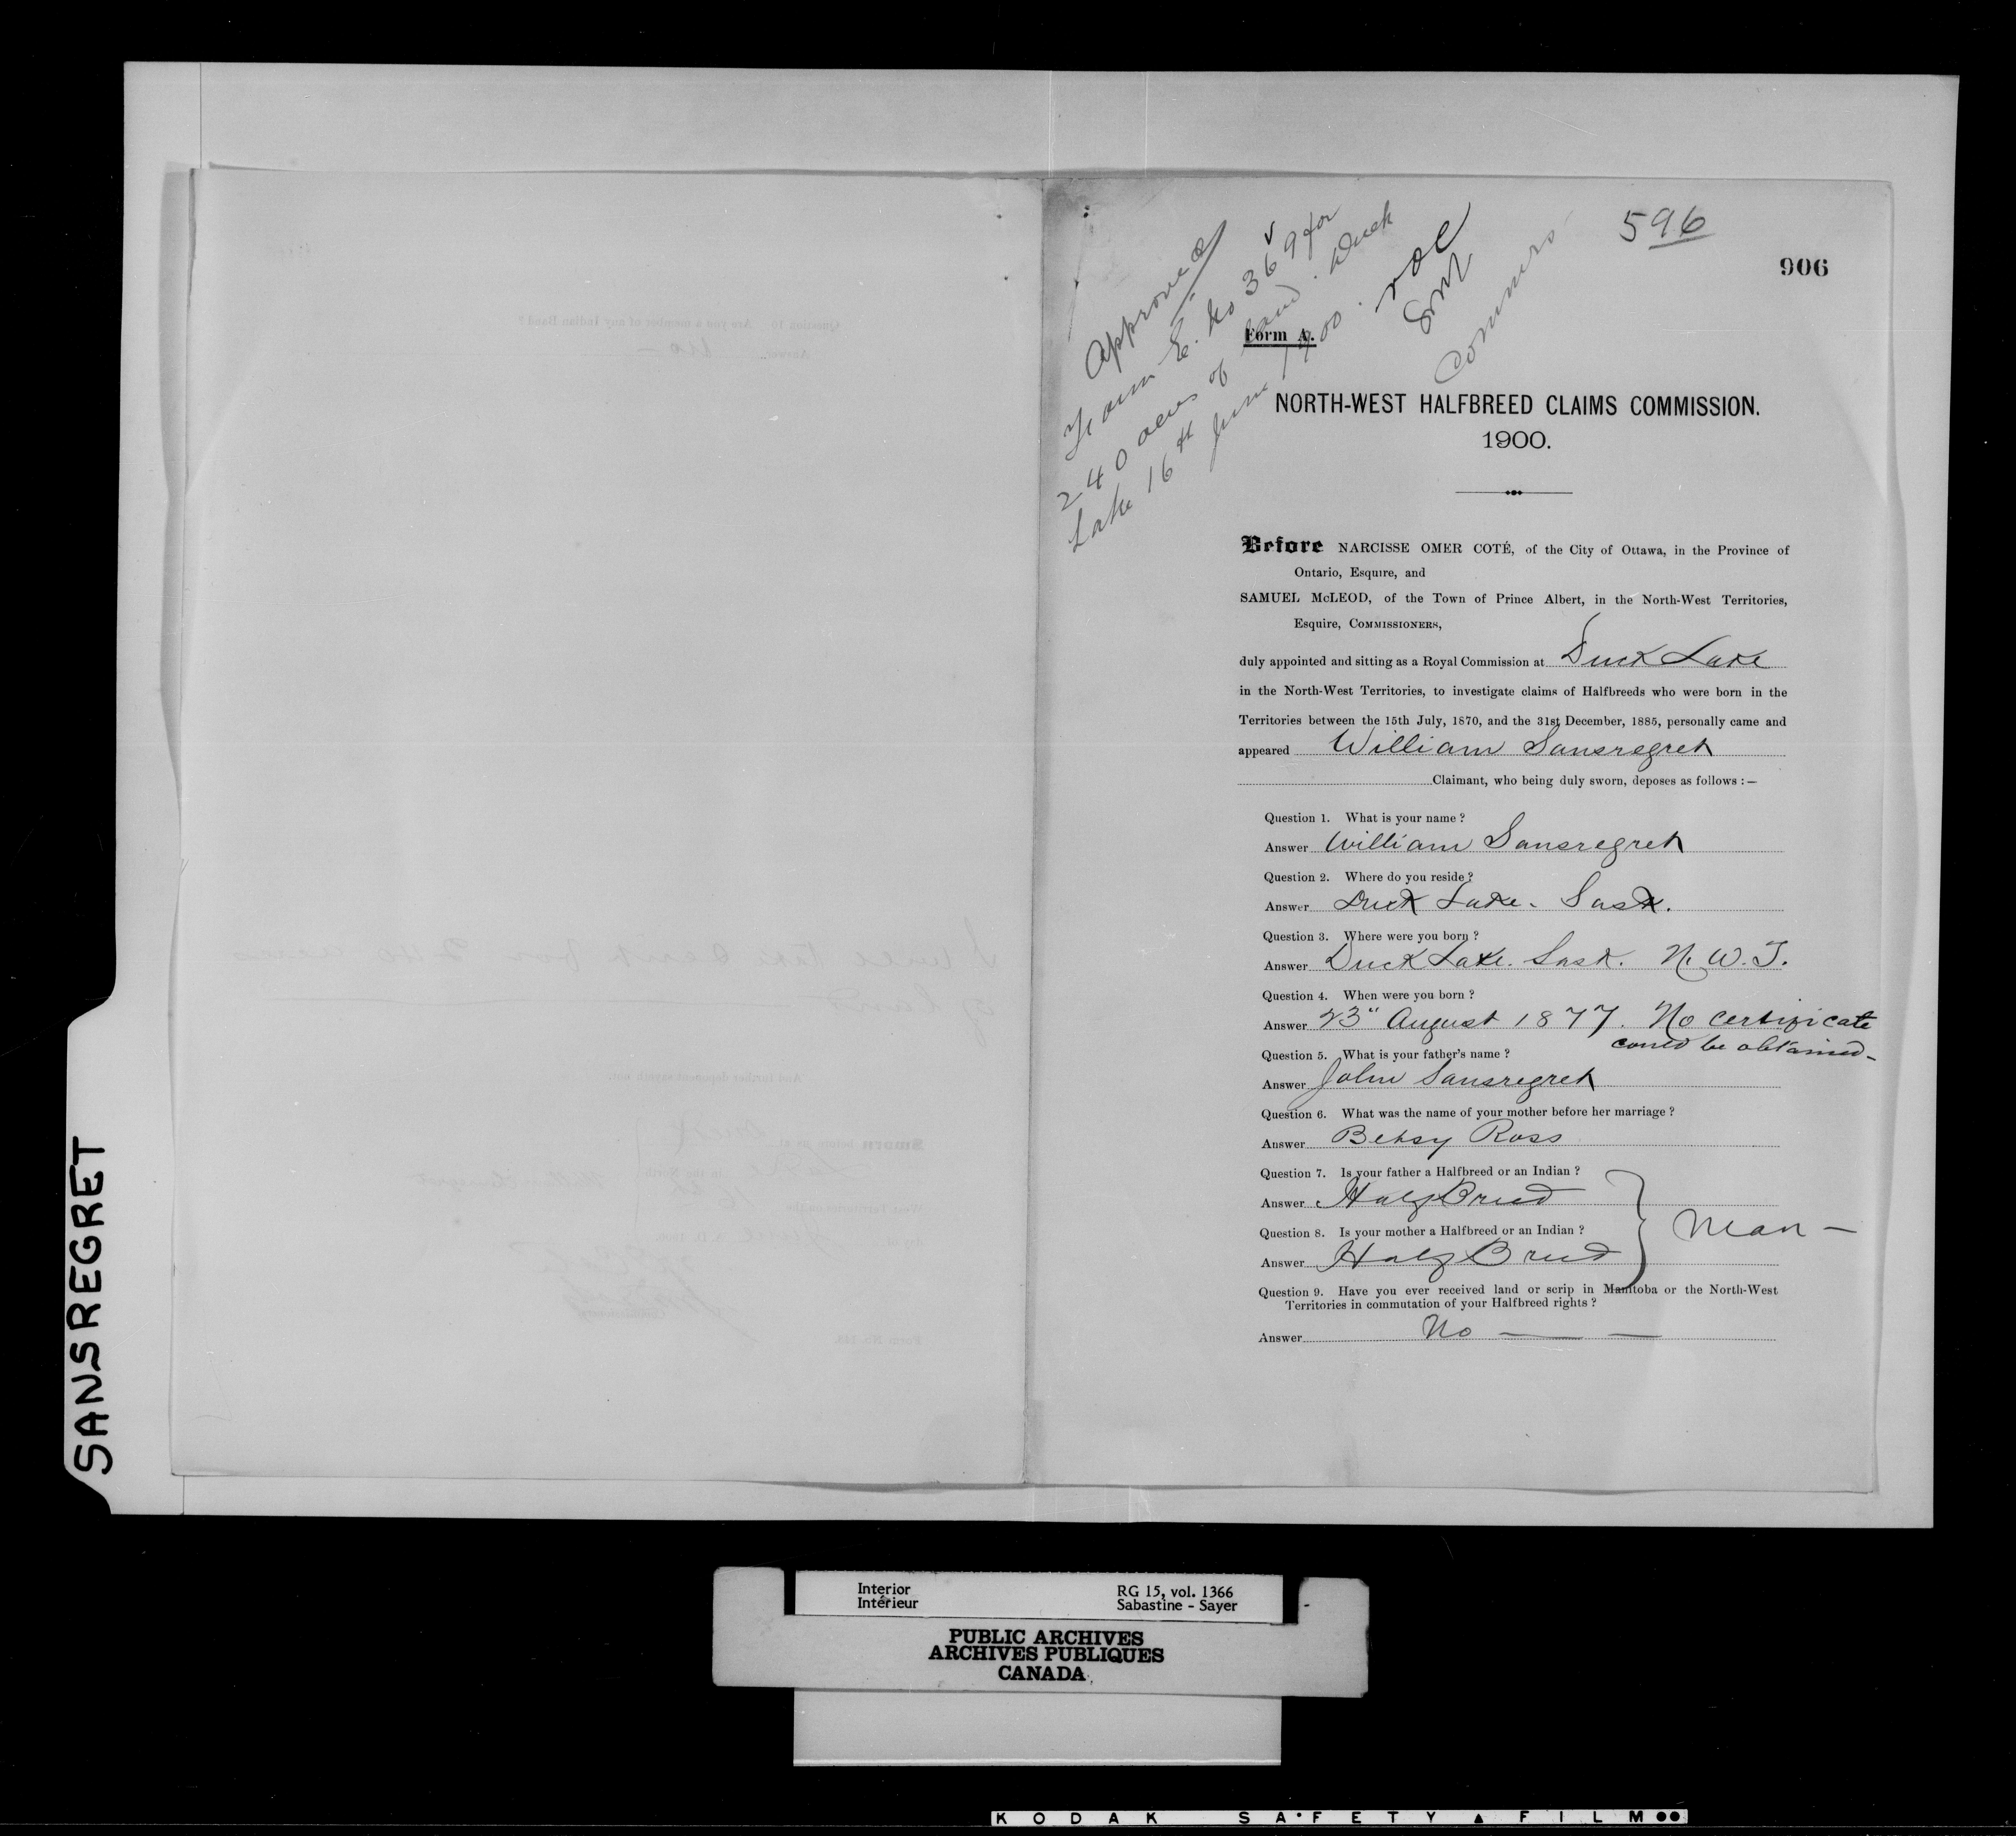 596
906
Approved
Form E. No 369 for
240 acres of land. Duck
Lake 16th June 1900.
NOC
SM
Commrs
Form A.
NORTH-WEST HALFBREED CLAIMS COMMISSION.
1900.
Before NARCISSE OMER COTÉ, of the City of Ottawa, in the Province of
Ontario, Esquire, and
SAMUEL McLEOD, of the Town of Prince Albert, in the North-West Territories,
Esquire, COMMISSIONERS,
duly appointed and sitting as a Royal Commission at Duck Lake
in the North-West Territories, to investigate claims of Halfbreeds who were born in the
Territories between the 15th July, 1870, and the 31st December, 1885, personally came and
appeared William Sansregret
Claimant, who being duly sworn, deposes as follows :—
Question 1. What is your name ?
Answer William Sansregret
Question 2. Where do you reside ?
Answer Duck Lake. Sask.
Question 3. Where were you born ?
Answer Duck Lake. Sask. N. W. T.
Question 4. When were you born ?
Answer 23" August 1877. No certificate
could be obtained-
Question 5. What is your father's name ?
Answer John Sansregret
Question 6. What was the name of your mother before her marriage ?
Answer Betsy Ross
Question 7. Is your father a Halfbreed or an Indian ?
Answer Half Breed
Question 8. Is your mother a Halfbreed or an Indian ?
Answer Half Breed
Man —
Question 9. Have you ever received land or scrip in Manitoba or the North-West
Territories in commutation of your Halfbreed rights ?
Answer No — —
SANSREGRET
Interior
Intérieur
RG 15, vol. 1366
Sabastine - Sayer
PUBLIC ARCHIVES
ARCHIVES PUBLIQUES
CANADA
KODAK SAFETY FILM